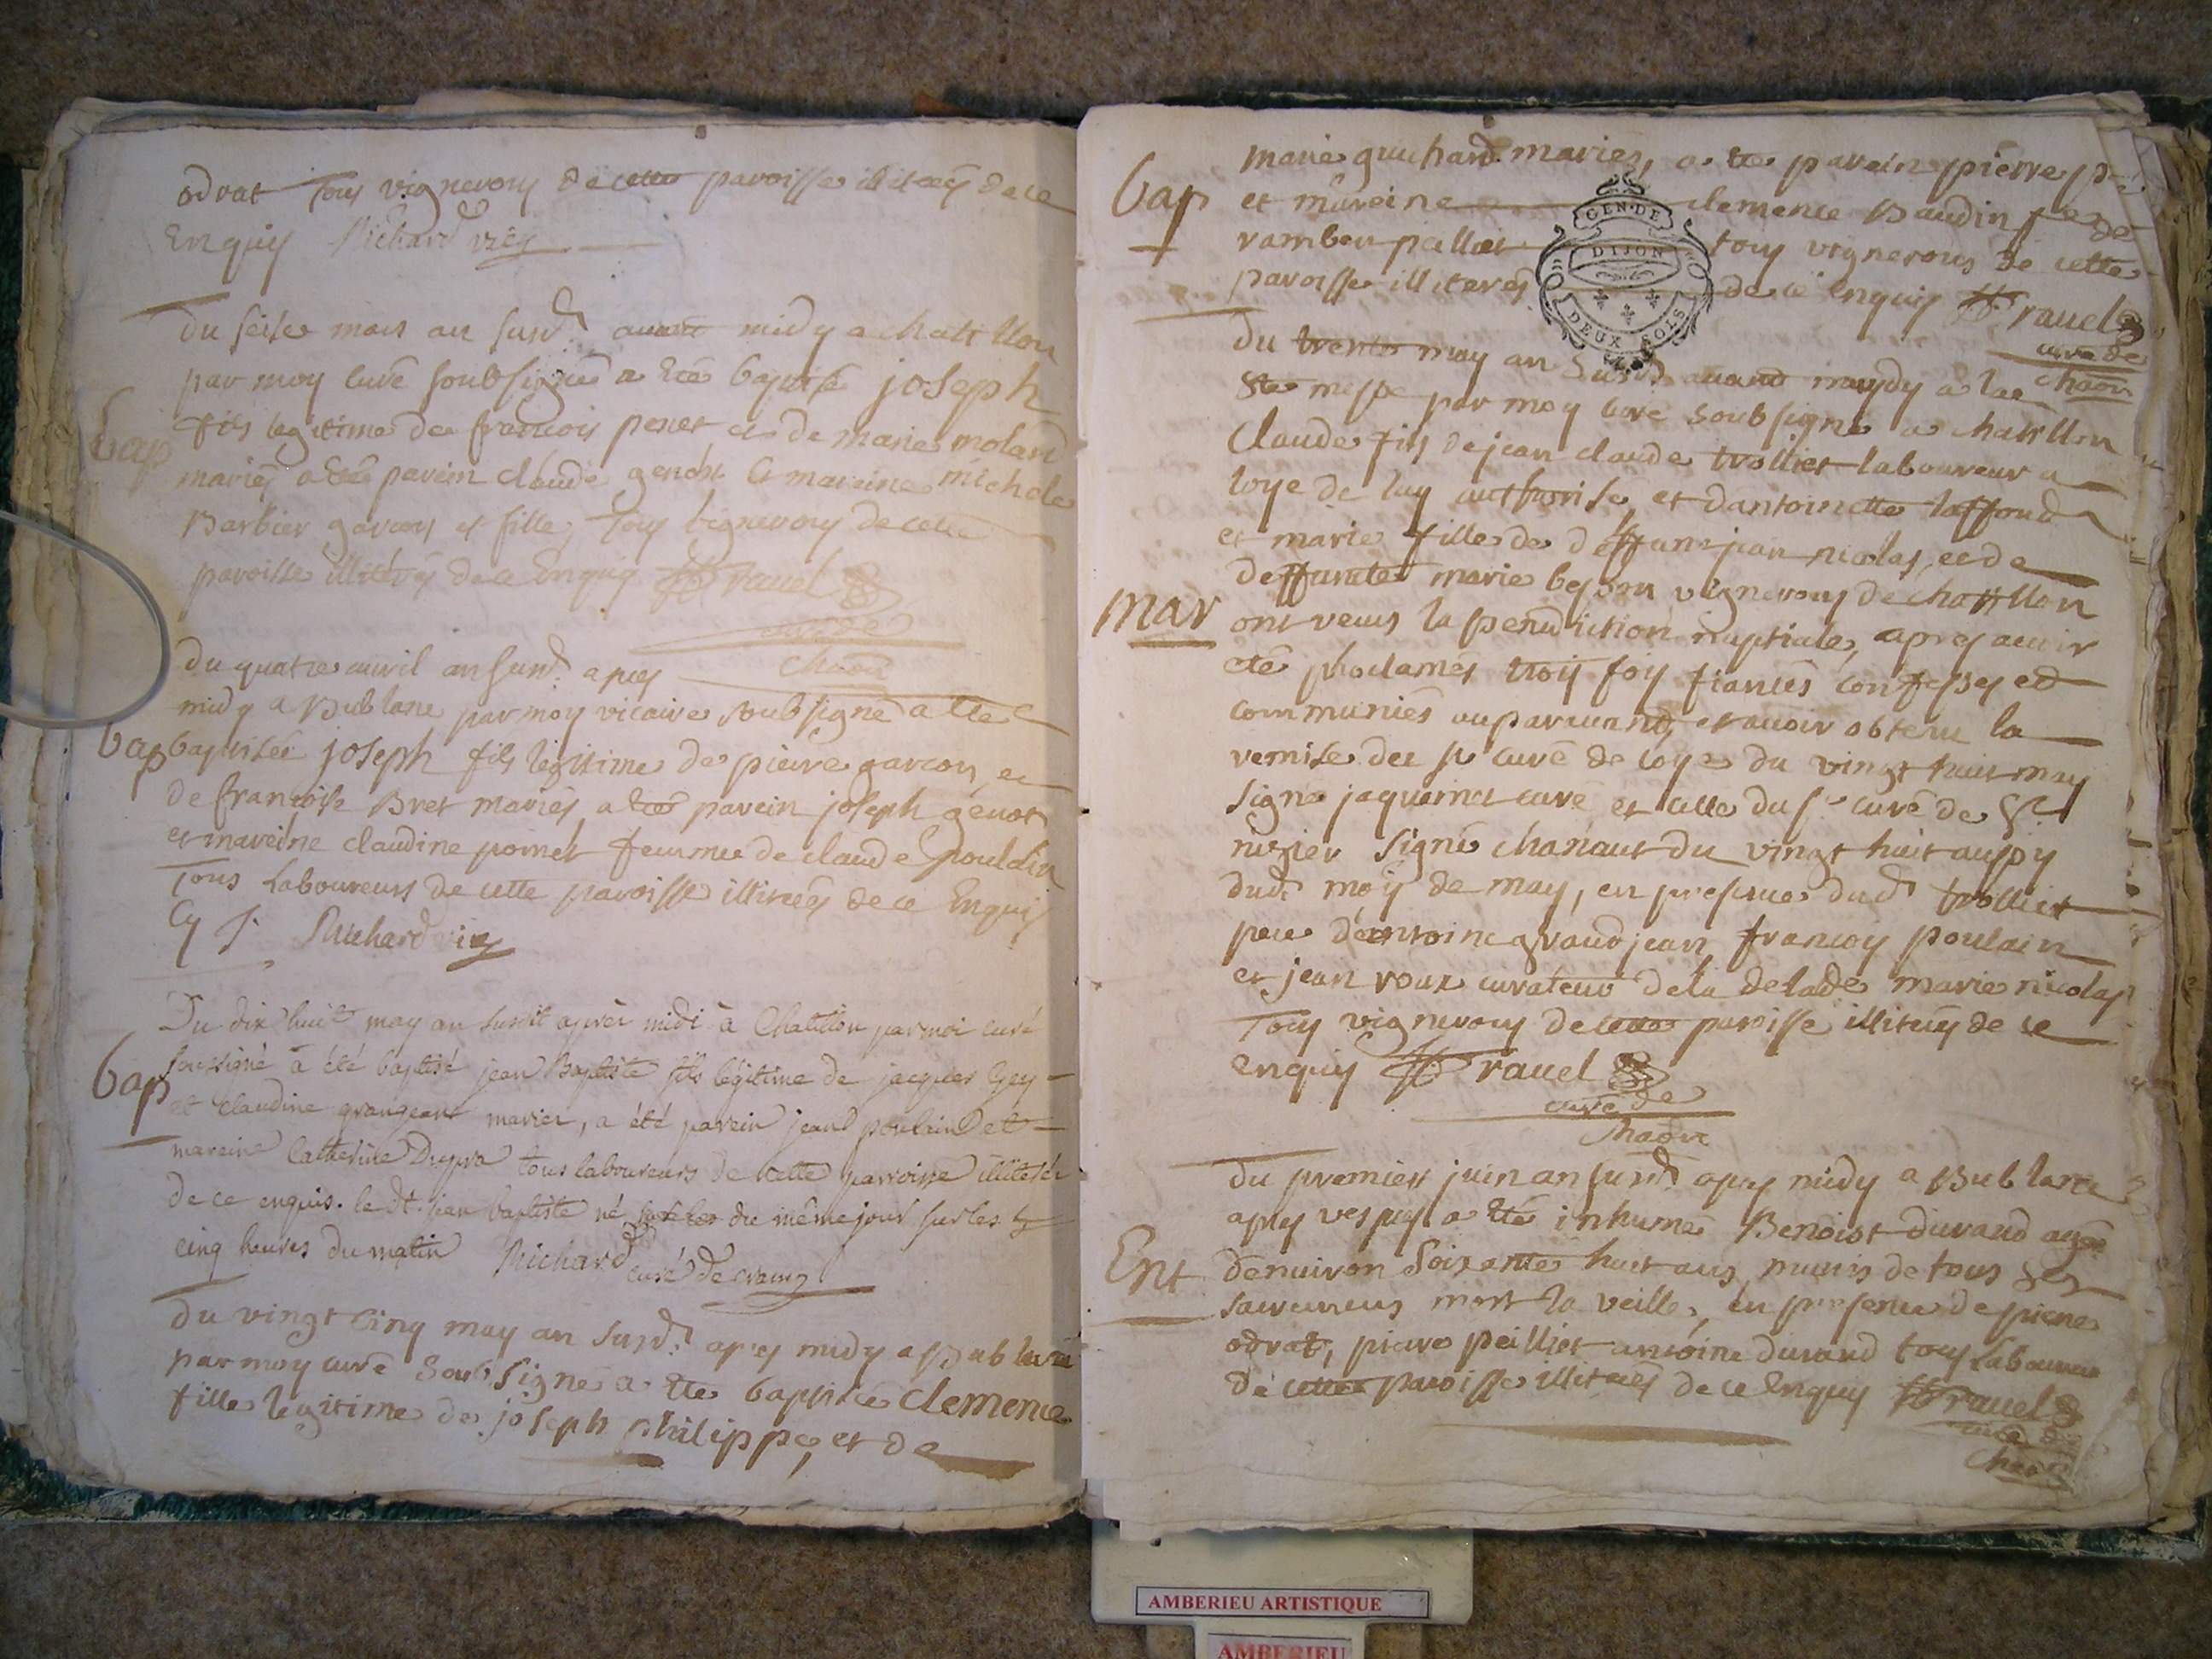 odrat Tous vignerons de cette paroisse illiterés de ce
Enquis Richard vic
Du seise mars an susd. avant midy a chatillon
par moy curé soubsigné a eté baptisé joseph
Bap
fils legitime de francois penet et de marie moland
mariés a eté parein claude genost et mareine michele
Barbier garcons et fille, Tous vignerons de cette
paroisse illiterés de ce Enquis ravel
curé de
chaon
du quatre avril an susd. apres
midy a Bublane par moy vicaire soubsigné a eté
bap
baptisée joseph fils legitime de pierre garcon, et
de francoise Bret mariés, a eté parein joseph genost
et mareine claudine poinet femme de claude poulain
Tous laboureurs de cette paroisse illiterés de ce Enquis
Richard vic
Du dix huit may an susdit après midi à Chatillon par moi curé
Bap
soussigné a été baptisé jean Baptiste fils légitime de jacques
et Claudine grangeant mariez, a été parein jean poulain et
mareine Catherine Dupra tous laboureurs de cette parroisse illiterés
de ce enquis. le dt. jean baptiste né du même jour sur les
cinq heures du matin Richard curé de
Du vingt cinq may an susd. apres midy a Bublane
par moy curé soubsigné a eté baptisée clemence
fille legitime de joseph philippe, et de
marie guichard mariés, a eté parein pierre
Bap
et mareine clemence Baudin fe de
rambeu pallier tous vignerons de cette
paroisse illiterés de ce Enquis ravel
curé de
chaon
GEN. DE
DIJON
DEUX SOLS
Du trente may an susd. avant maydy a la
ste messe par moy curé soubsigné a chatillon
Claude fils de jean claude trolliet laboureur a
loye de luy authorisé, et dantoinette laffond
et marie fille de deffunt jean nicolas, et de
deffuncte marie besson vignerons de chatillon
mar
ont receus la benediction nuptiale, apres avoir
eté proclamés trois fois fiancés confessés et
communiés auparavand, et avoir obtenu la
remise du sr curé de loye du vingt huit may
signé jaquemet curé et celle du sr curé de St
nizier signé chanaut du vingt huit aussy
dud. mois de may, en presence dud. trolliet
pere d'antoine grandjean, francois poulain
et jean roux curateur de la delade marie nicolas
Tous vignerons de cette paroisse illiterés de ce
enquis ravel
curé de
chaon
Du premier juin an susd. apres midy a Bublane
apres vespres a eté inhumé Benoist durand agé
Ent
denviron soixante huit ans, munis de tous ses
sacremens mort la veille, en presence de pierre
odrat, pierre peilliet antoine durand tous laboureurs
de cette paroisse illiterés de ce Enquis ravel
curé de
chaon
AMBERIEU ARTISTIQUE
AMBERIEU